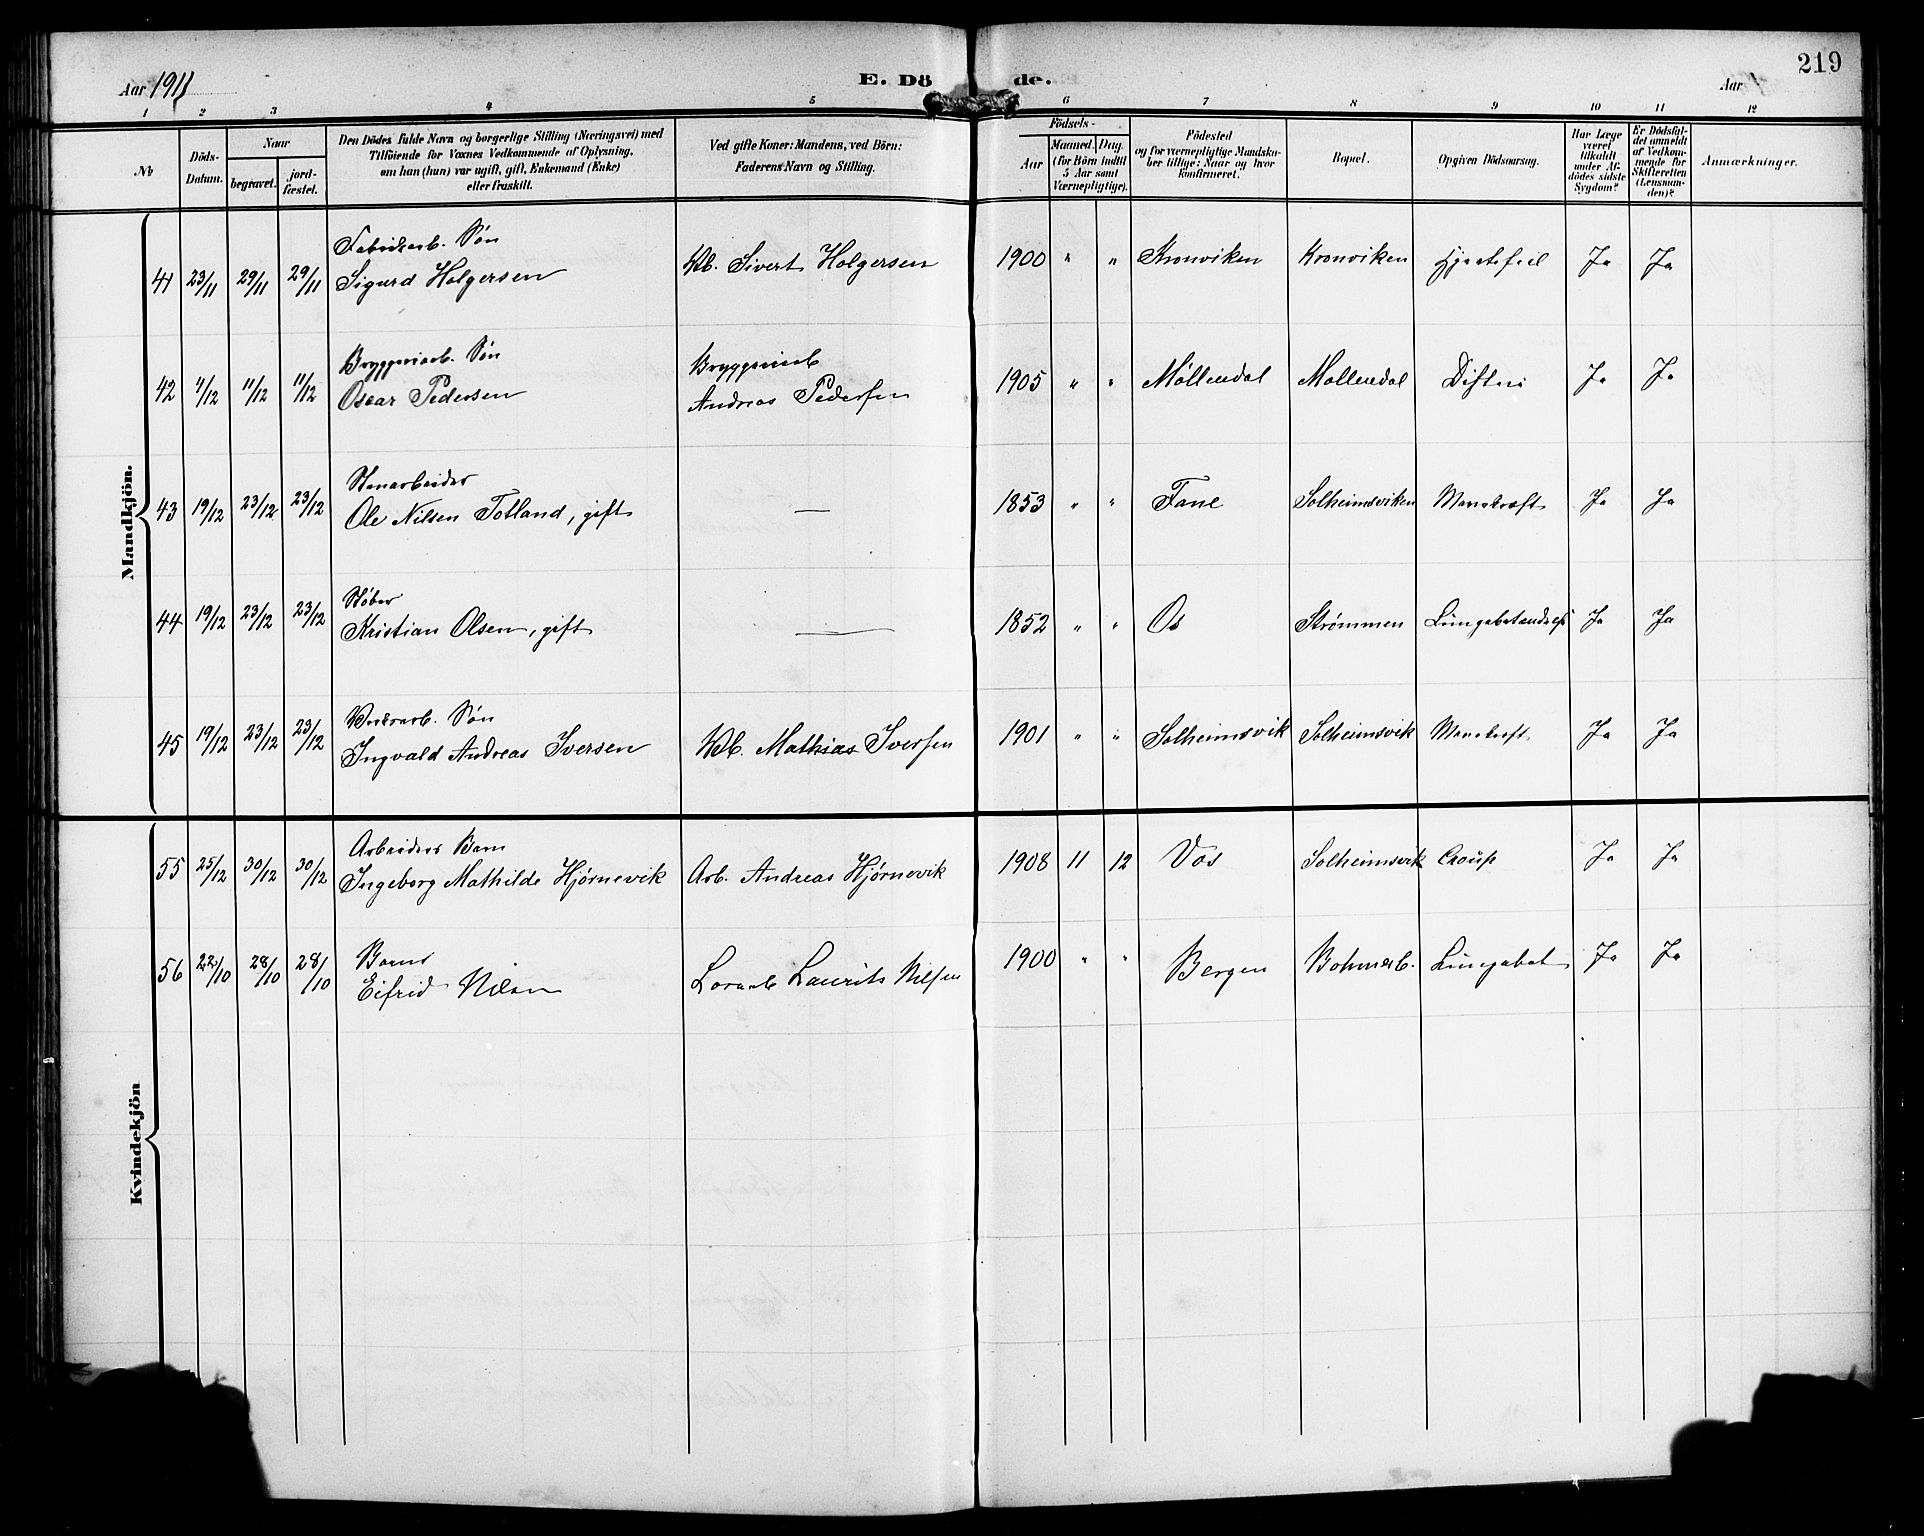 219
Aar 1911
E. Dö de.
Aar
1 2 3 4 5 6 7 8 9 10 11 12
No
Döds-Datum.
Naar
begravet.
jord-fæstet.
Den Dödes fulde Navn og borgerlige Stilling (Næringsvei) med
Tilföiende for Voxnes Vedkommende af Oplysning,
om han (hun) var ugift, gift, Enkemand (Enke)
eller fraskilt.
Ved gifte Koner: Mandens, ved Börn:
Faderens Navn og Stilling.
Födsels-
Aar
Maaned. Dag.
(for Börn indtil
5 Aar samt
Værnepligtige).
Födested
og for værnepligtige Mandska-
ber tillige: Naar og hvor
konfirmeret.
Bopæl.
Opgiven Dödsaarsag.
Har Læge
været
tilkaldt
under Af-
dödes sidste
Sygdom?
Er Dödsfal-
det anmeldt
af Vedkom-
mende for
Skifteretten
(Lensman-
den)?
Anmærkninger.
Mandkjön.
Fabrikarb. Søn
41 23/11 29/11 29/11 Sigurd Holgersen Sivert Holgersen 1900 " " Kronviken Kronviken Hjertefeil Ja Ja
Bryggeriarb. Søn Bryggeriarb
42 4/12 11/12 11/12 Oscar Pedersen Andreas Pedersen 1905 " " Möllendal Mollendal Difteri Ja Ja
Stenarbeider
43 19/12 23/12 23/12 Ole Nilsen Totland, gift — 1853 " " Fane Solheimsviken Mavekræft Ja Ja
Støber
44 19/12 23/12 23/12 Kristian Olsen, gift — 1852 " " Os Strømmen Ja Ja
Verksarb. Søn
45 19/12 23/12 23/12 Ingvald Andreas Iversen Mathias Iversen 1901 " " Solheimsvik Solheimsvik Ja Ja
Kvindekjön
Arbeiders Barn
55 25/12 30/12 30/12 Ingeborg Mathilde Hjørnevik Arb. Andreas Hjørnevik 1908 11 12 Vos Solheimsvik Croup Ja Ja
56 22/10 28/10 28/10 Eifrid Nilsen Laurits Nilsen 1900 " " Bergen Lungebet Ja Ja